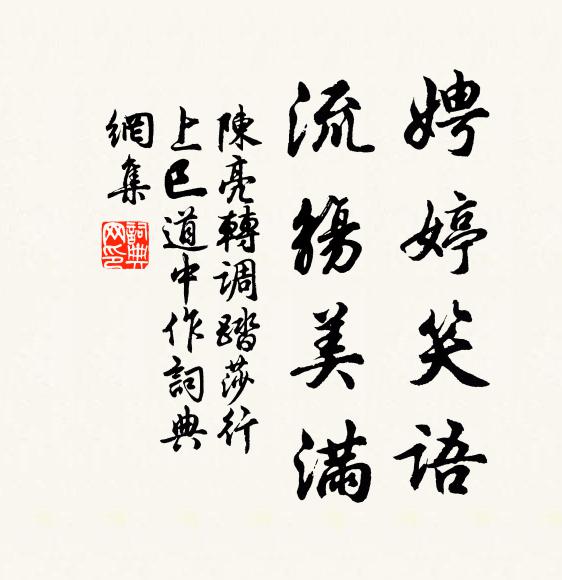 娉婷笑语
流觞美满
陳亮轉调踏莎行
上巳道中作詞典
網集
詞典网印